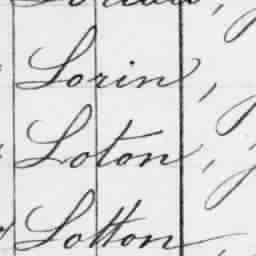 Lorin,
Loton,
Lotton,